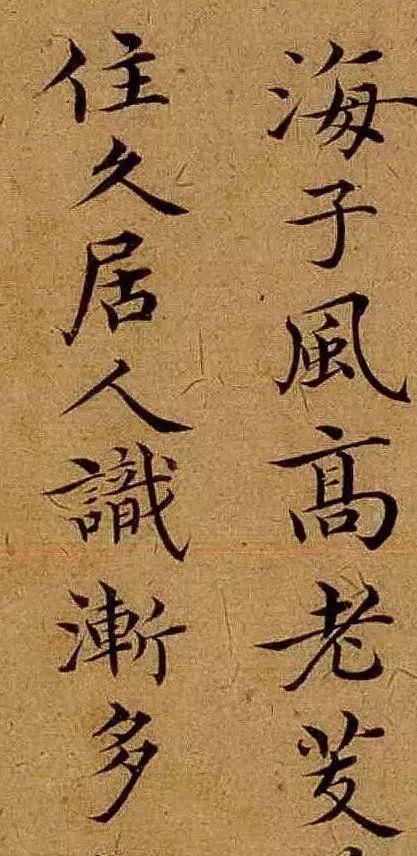 海子風髙老芰
住久居人識漸多